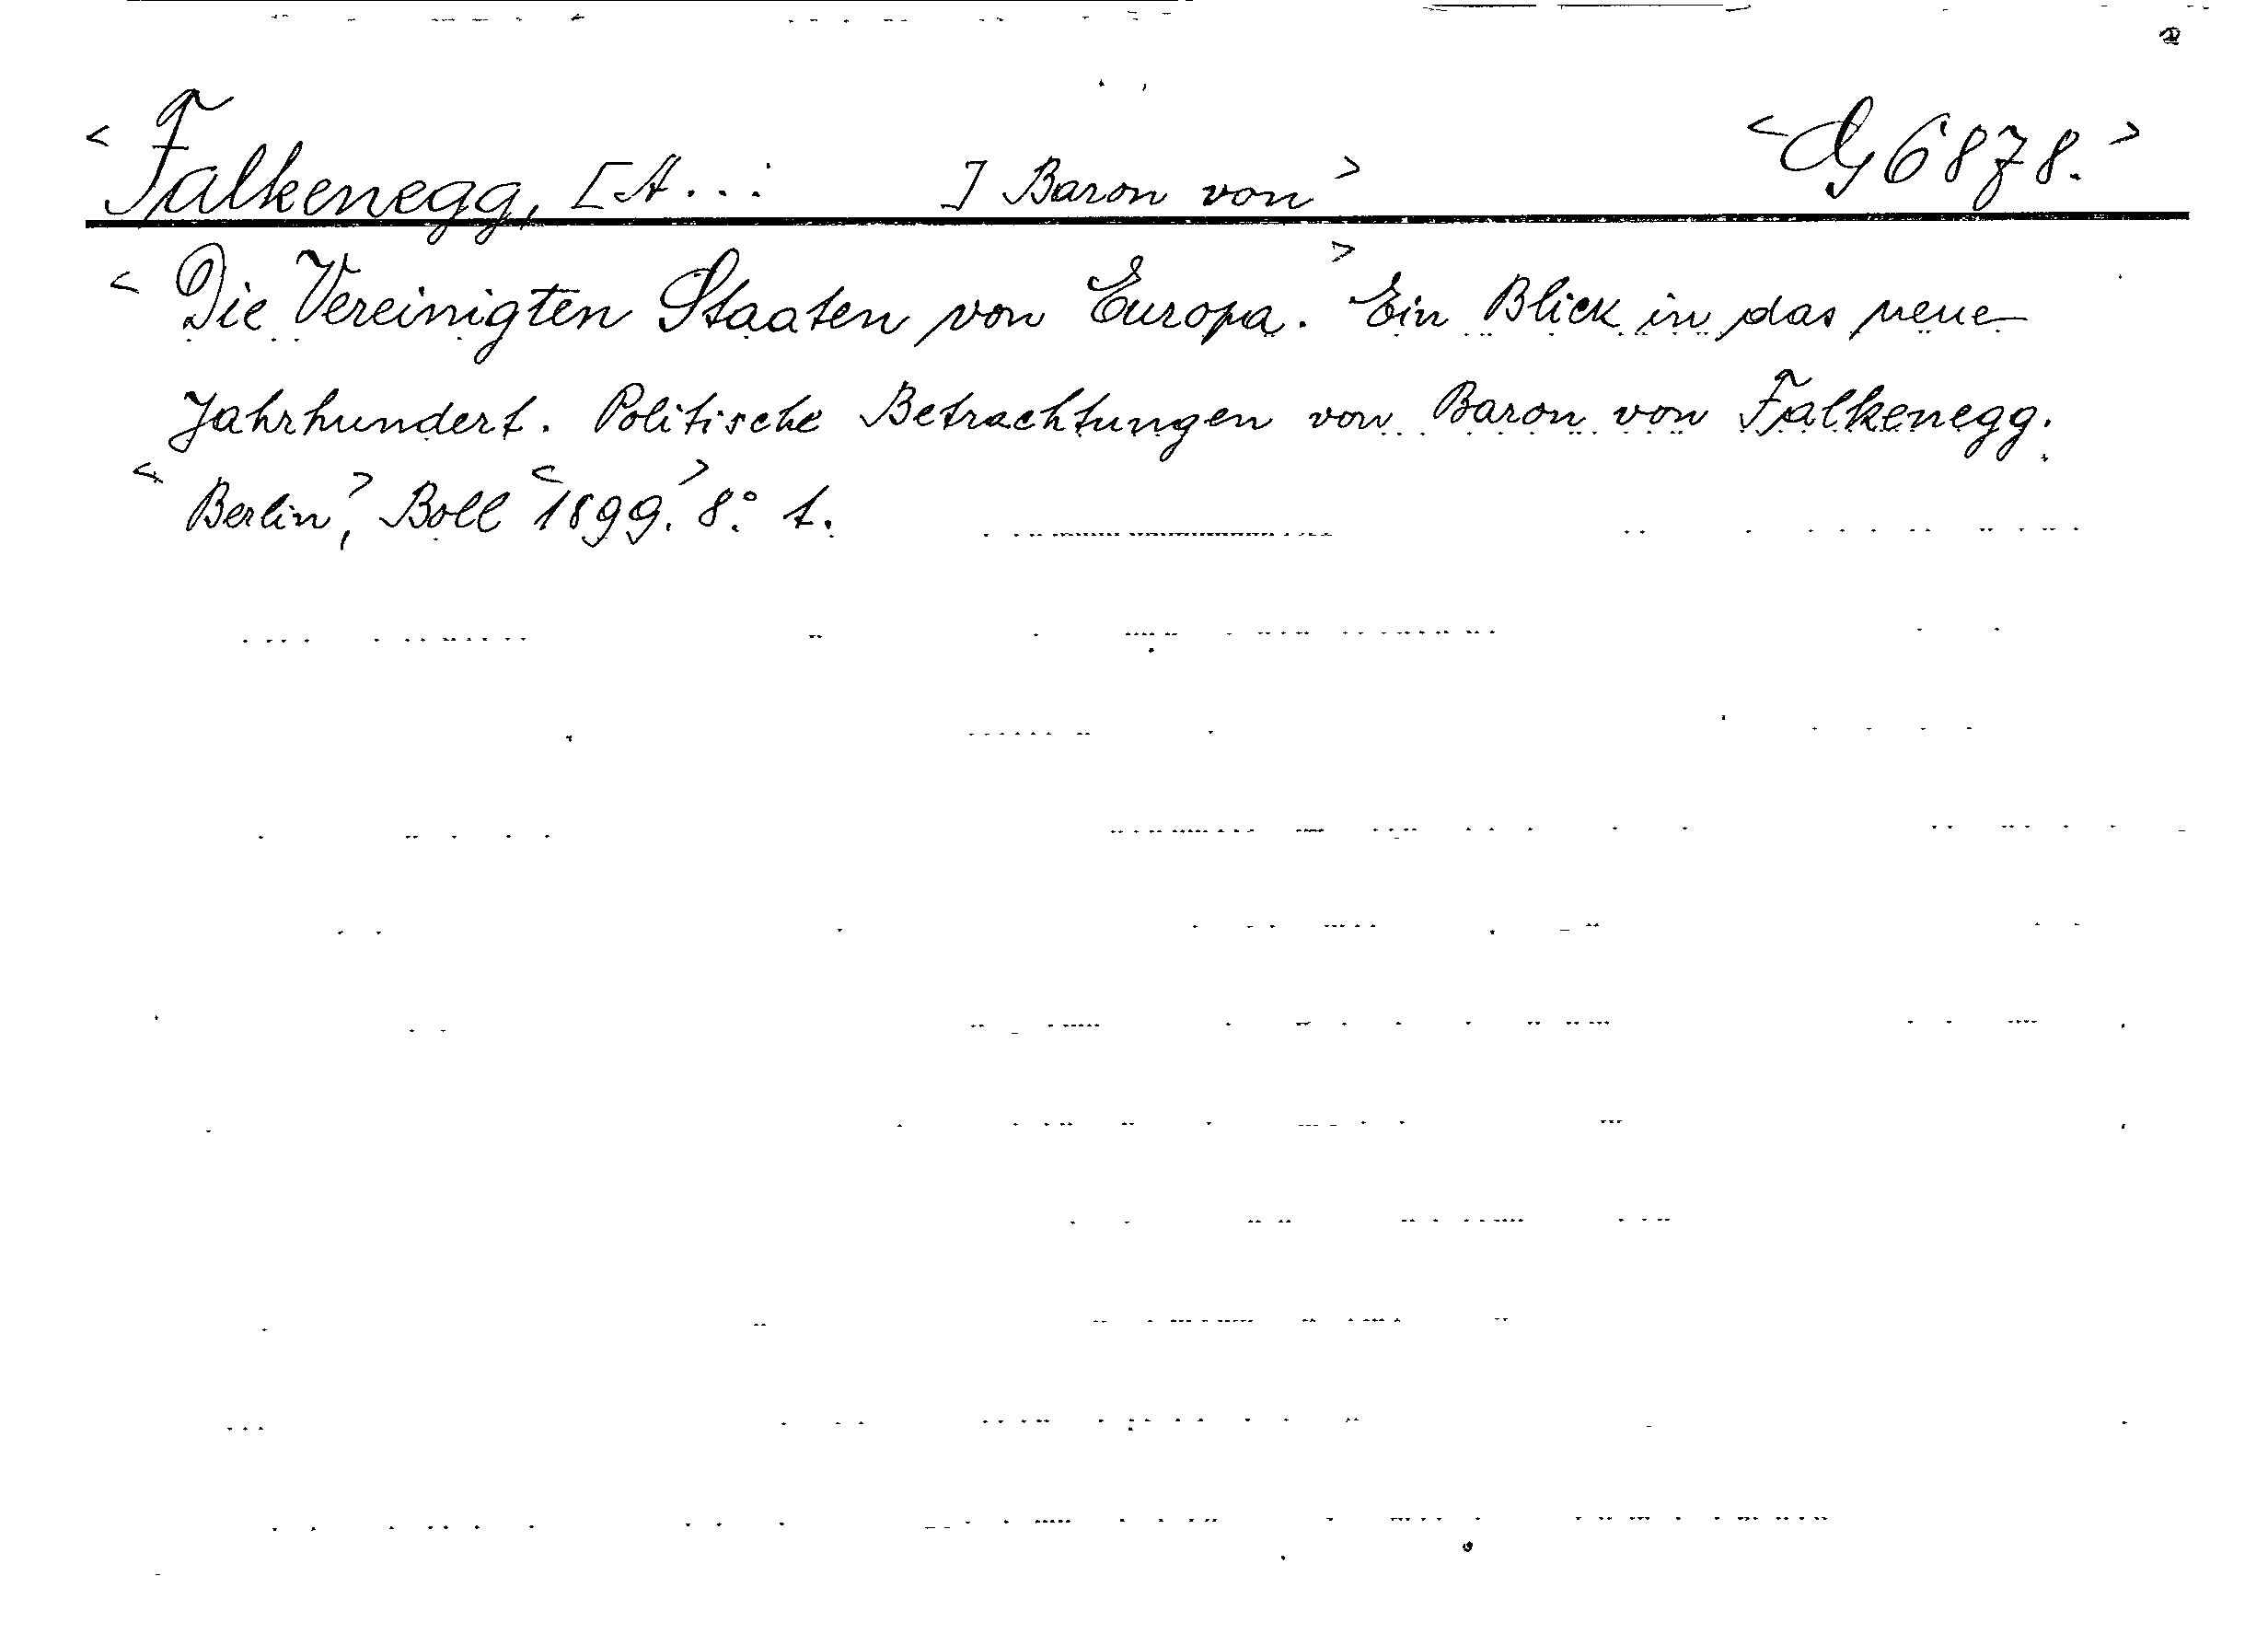 < Falkenegg, [A...: ] Baron von > < G 6878. >
< Die Vereinigten Staaten von Europa. > Ein Blick in das neue
Jahrhundert. Politische Betrachtungen von Baron von Falkenegg.
< Berlin >, Boll < 1899. > 8:° 1.